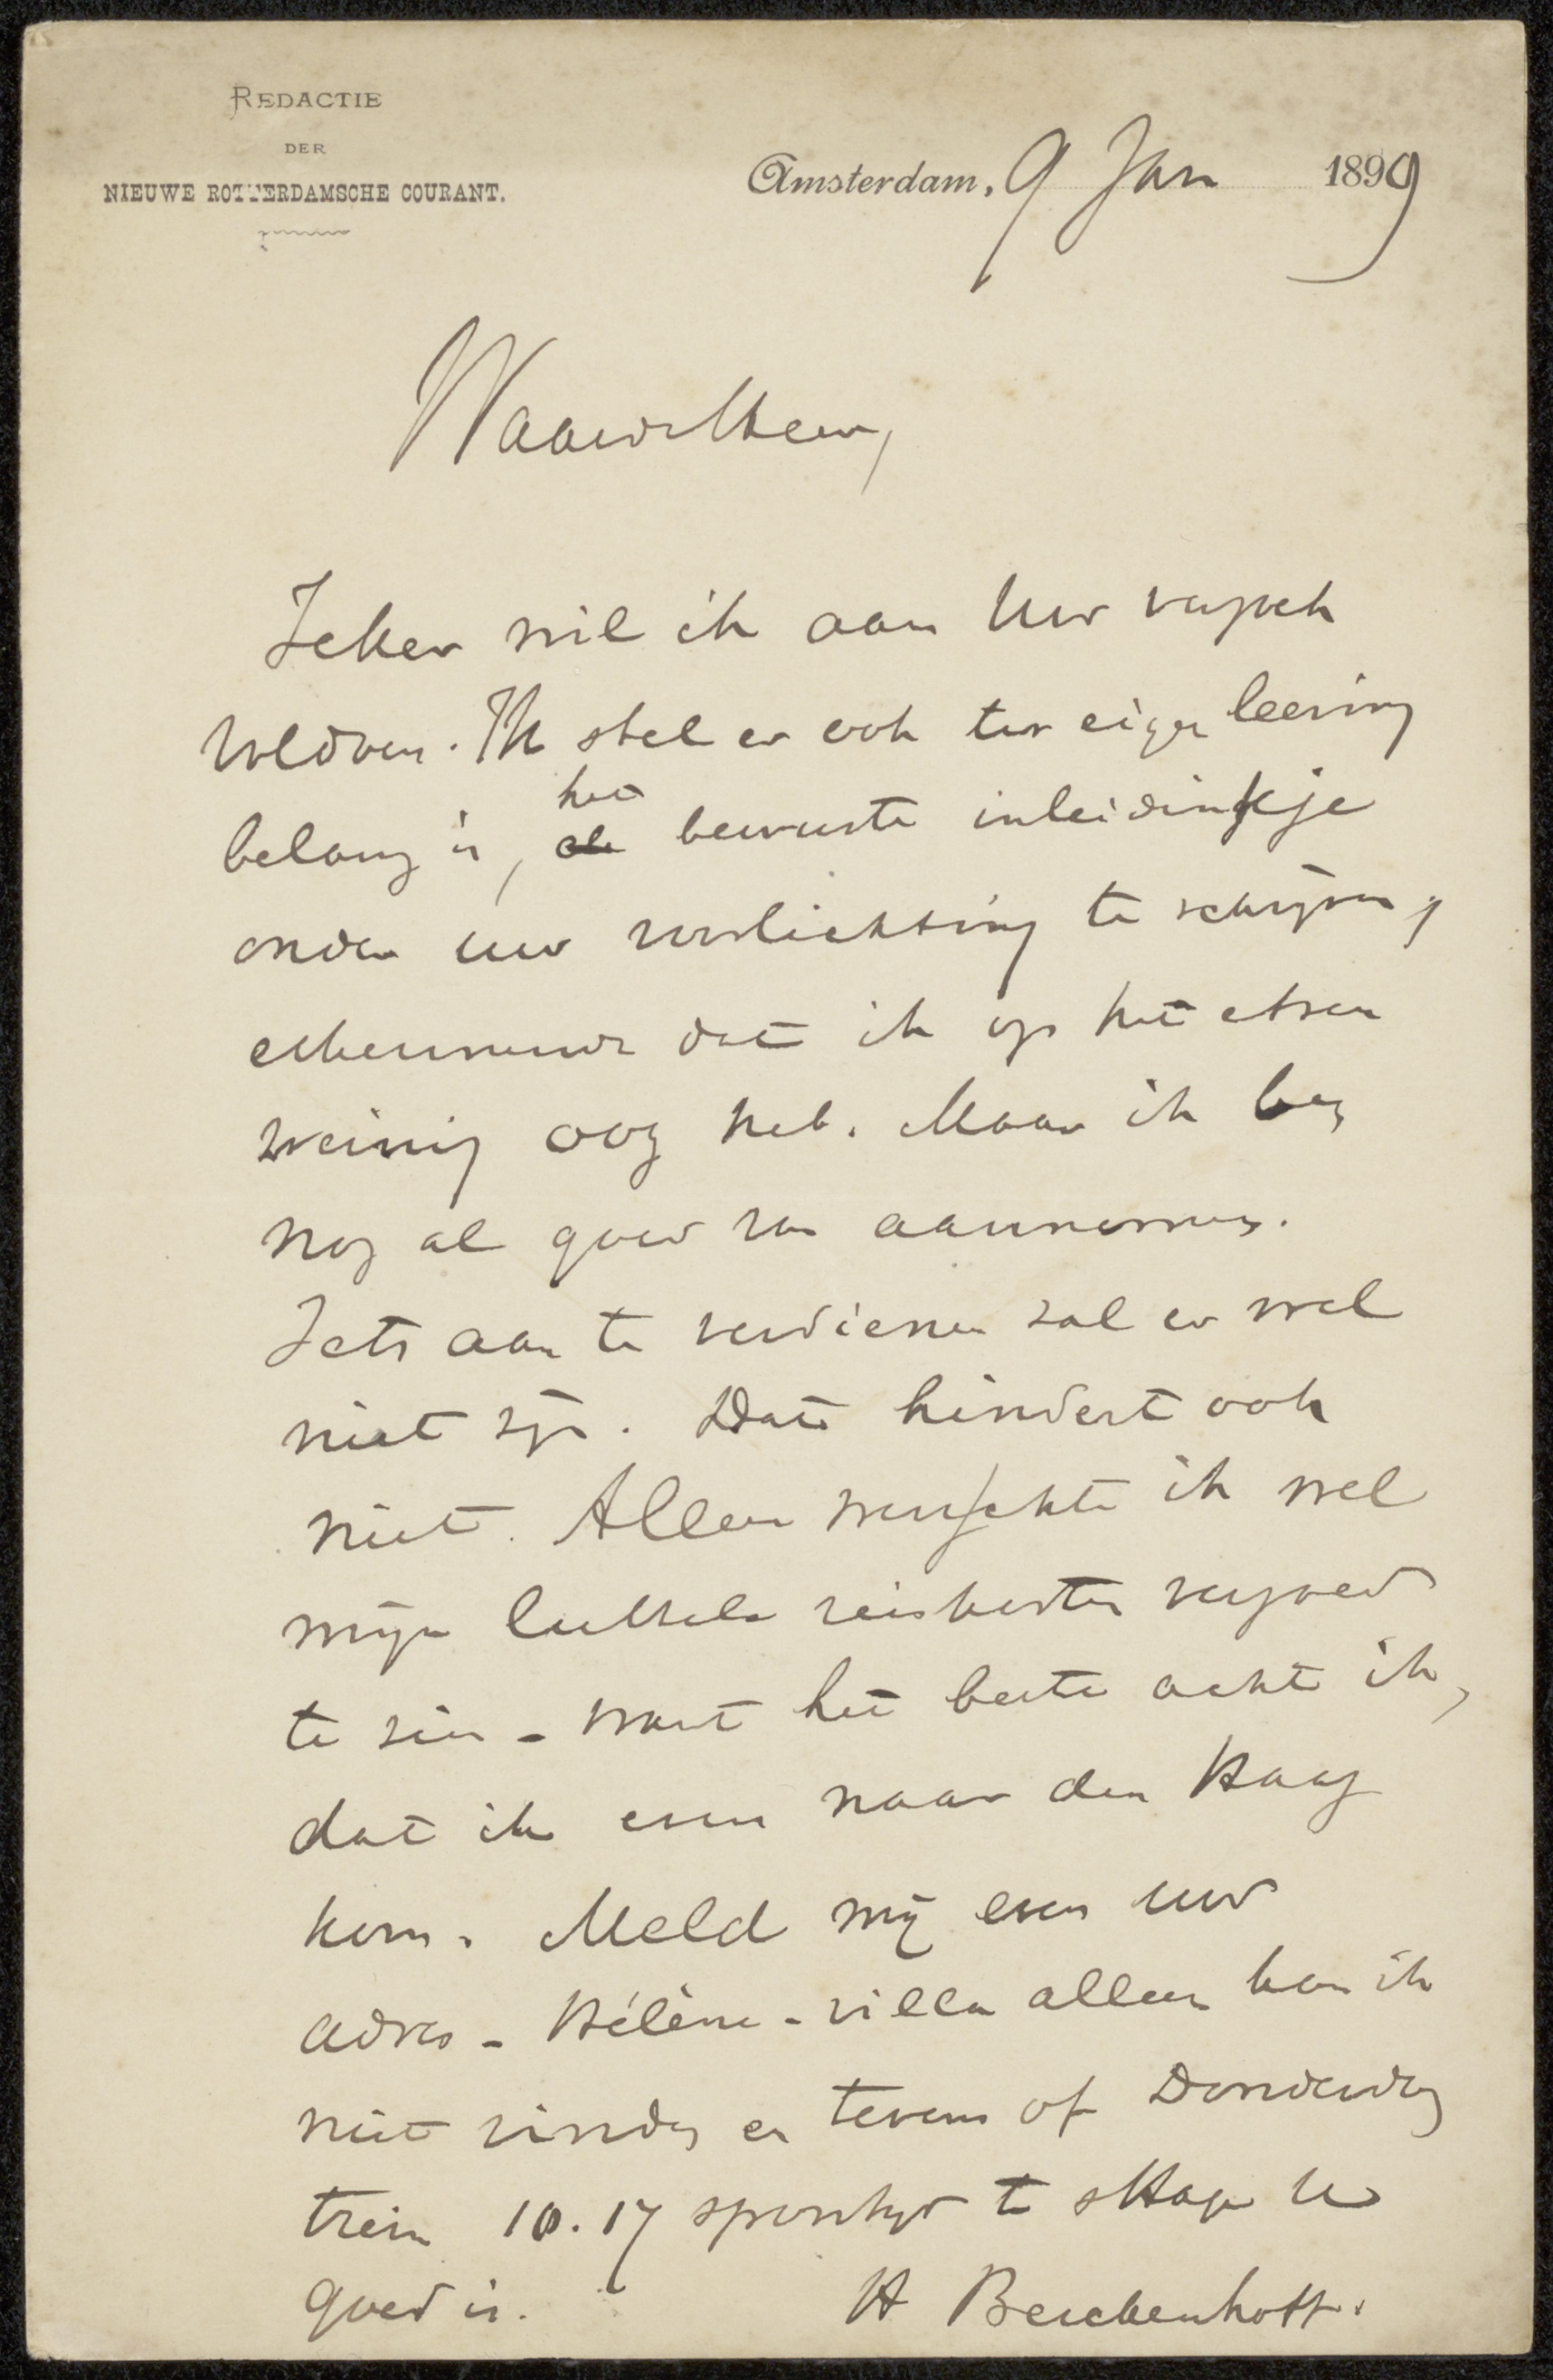 REDACTIE
DER
NIEUWE ROTTERDAMSCHE COURANT.
Amsterdam, 9 Jan 1899
Waarde Heer,
Zeker wil ik aan Uw verzoek
voldoen. Ik stel er ook ter eigen leering
belang in, het bewuste inleidinkje
onder uw voorlichting te schrijven,
erkennende dat ik op het etsen
weinig oog heb. Maar ik ben
nog al goed van aannemen.
Iets aan te verdienen zal er wel
niet zijn. Dat hindert ook
niet. Alleen wenschte ik wel
mijn luttele reiskosten vergoed
te zien - want het beste acht ik,
dat ik even naar den Haag
kom. Meld mij even uw
adres - Hélène-villa alleen kan ik
niet vinden en tevens of Donderdag
trein 10.17 spoortijd te sHage U
goed is.
H Berckenhoff.